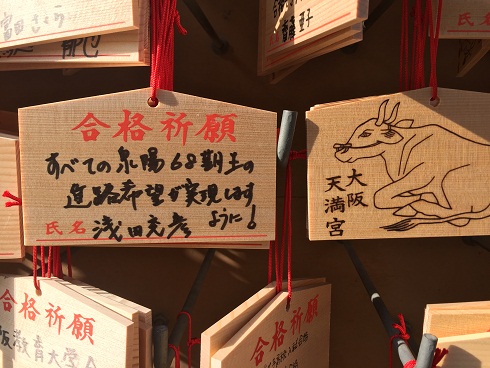 合格祈願
すべての泉陽68期生の
進路希望が実現します
ように!
氏名 浅田充彦
大阪
天満宮
合格祈願
合格祈願
氏名